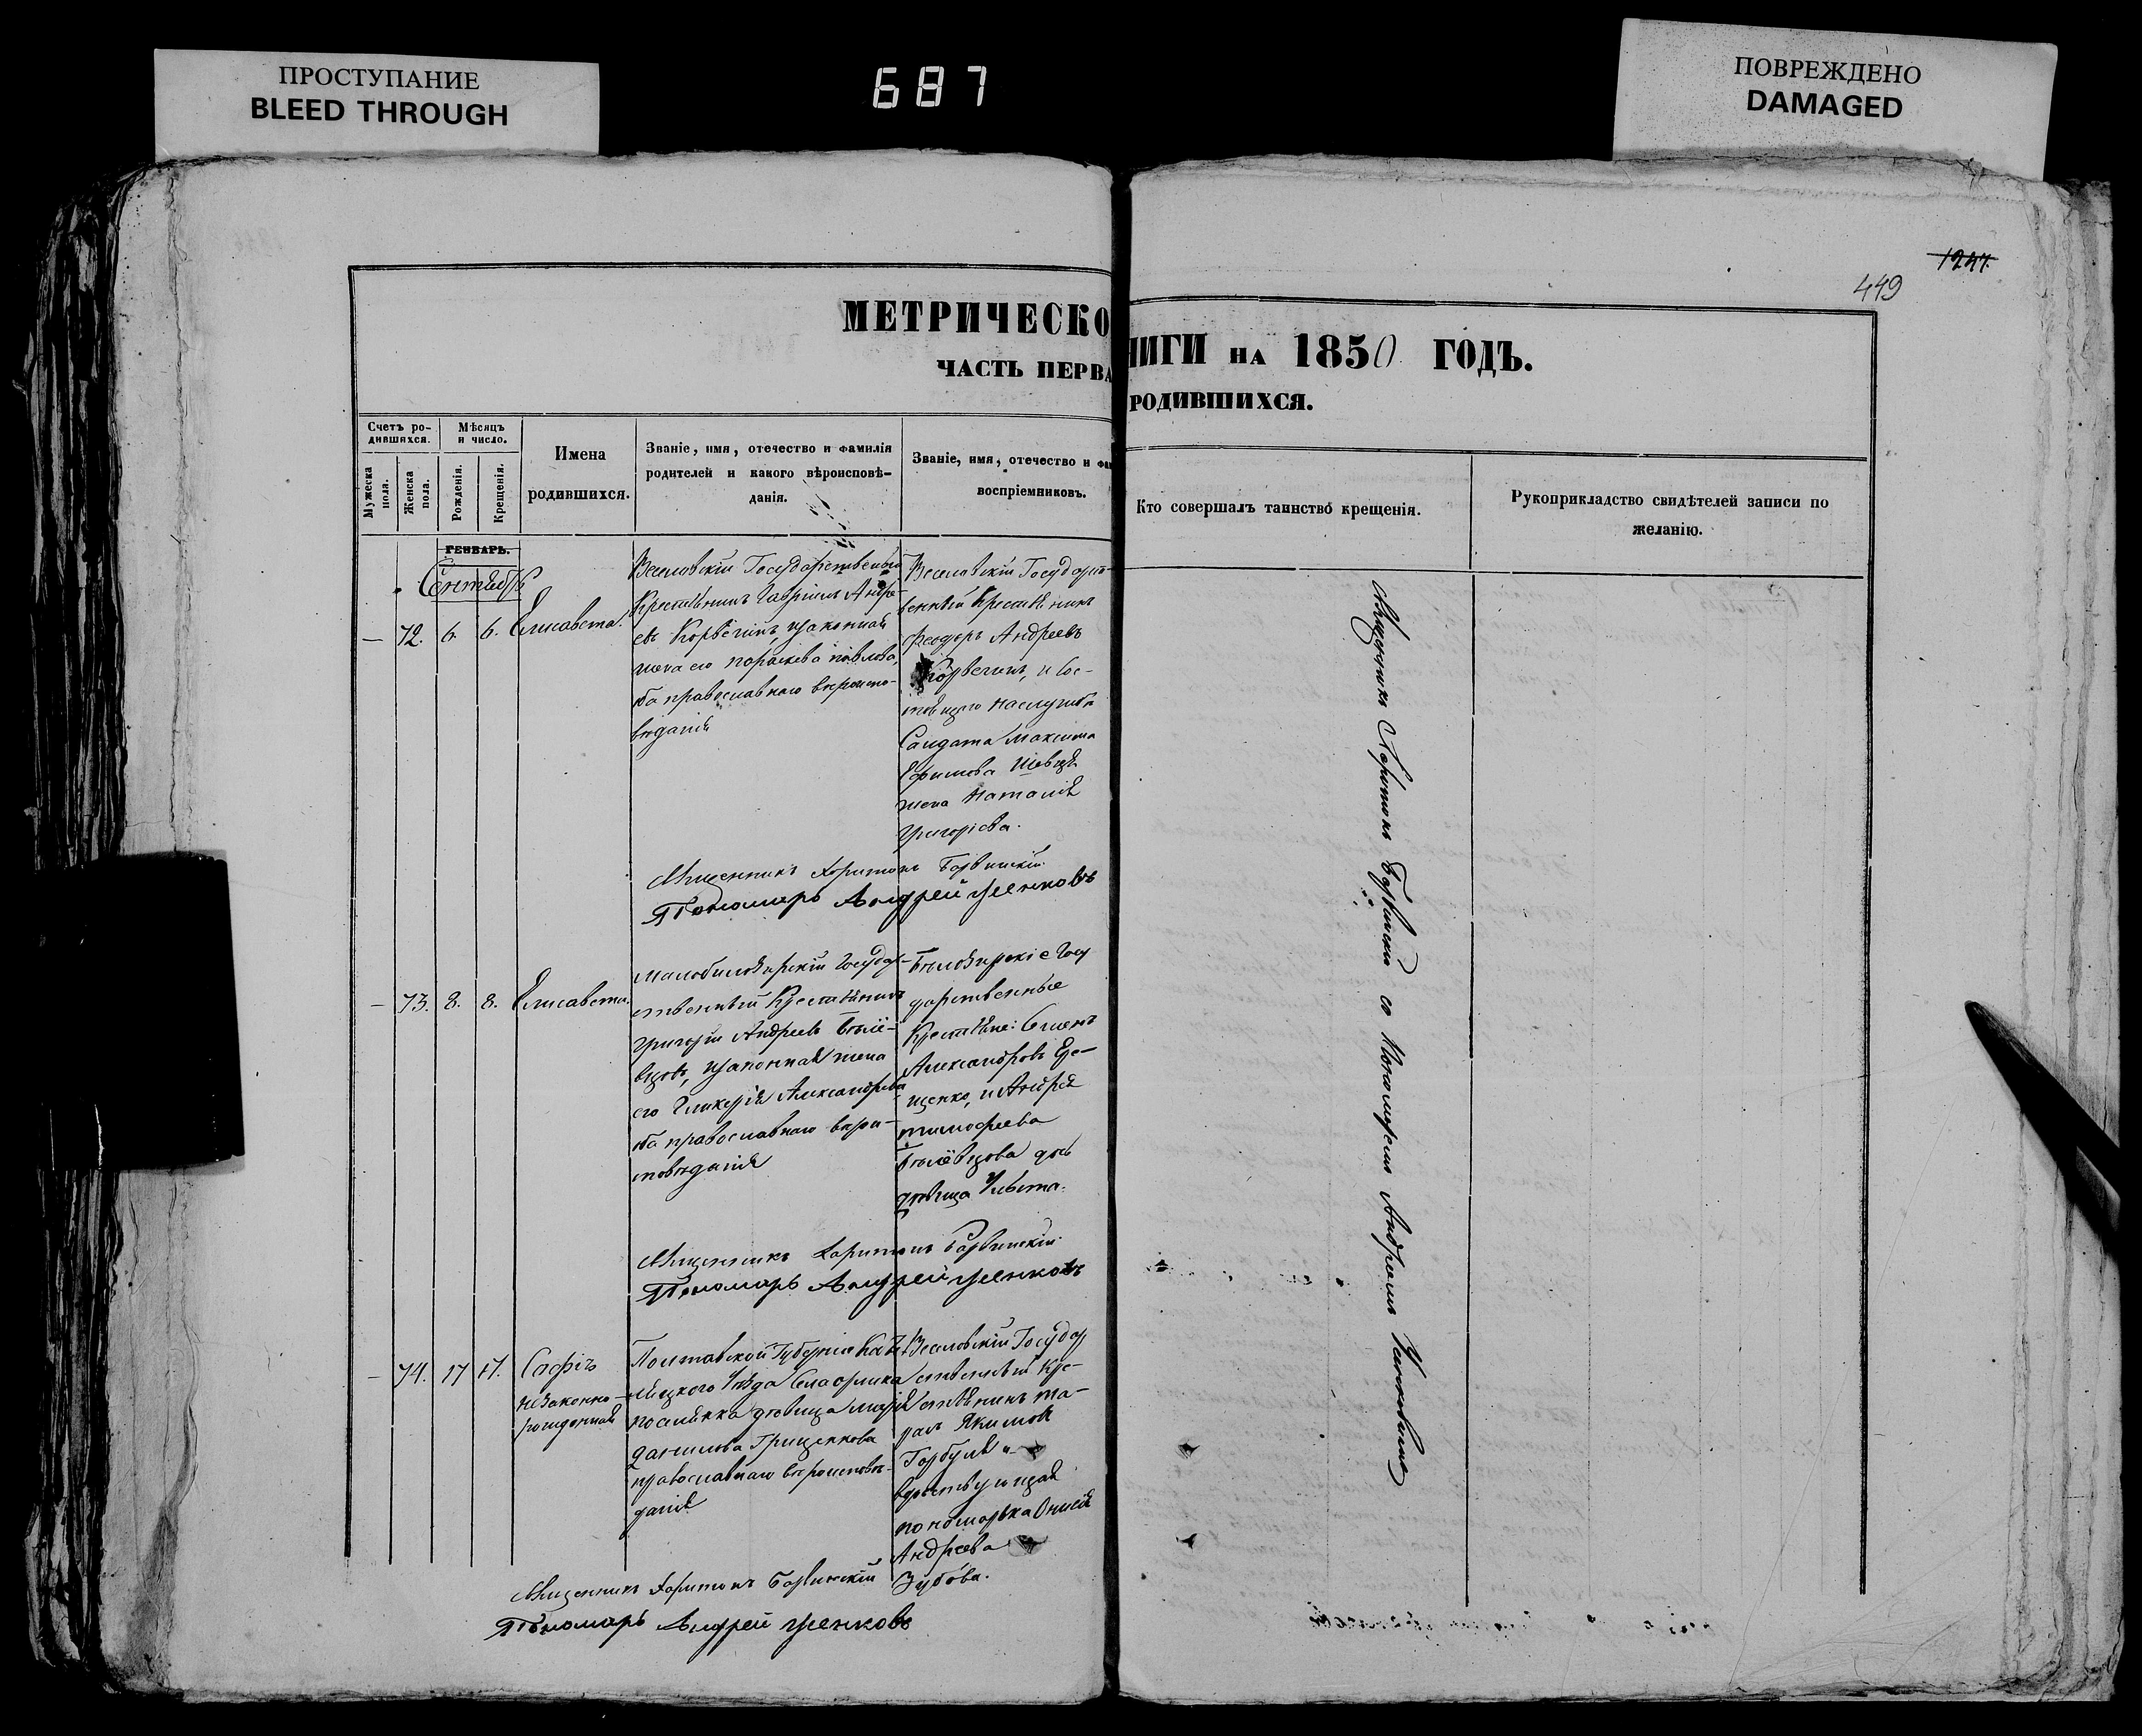 ПРОСТУПАНИЕ
BLEED THROUGH
687
ПОВРЕЖДЕНО
DAMAGED
1247.
449
МЕТРИЧЕСКО
НИГИ НА 1850 ГОДЪ.
ЧАСТЬ ПЕРВА
РОДИВШИХСЯ.
Счетъ ро-
дившихся.
Мужеска пола.
Женска пола.
Мѣсяцъ
и число.
Рожденія.
Крещенія.
Имена
родившихся.
Званіе, имя, отечество и фамилія
родителей и какого вѣроисповѣ-
данія.
Званіе, имя, отечество и фам
воспріемниковъ.
Кто совершалъ таинство крещенія.
Рукоприкладство свидѣтелей записи по
желанію.
ГЕНВАРЬ.
Сентябрь
— 72. 6. 6. Елисавета.
Веселовскій Государственный
Крестьянинъ Гавріилъ Андре-
евъ Корвѣгинъ, изаконная
жена его параскева павлова,
оба православнаго вѣроиспо-
вѣданія
Веселовскій Государст-
венный Крестьянинъ
феодоръ Андреевъ
Корвегинъ, и Сос-
тоящаго наслужбѣ
Салдата Максима
Ефимова
жена Наталія
Григоріева.
Священникъ Харитонъ Борвинскій.
Пономарь Андрей Усенковъ
— 73. 8. 8. Елисавета.
Малобилозирскій Государ-
ственный Крестьянинъ
Григорій Андреевъ
изаконная жена
его Гликерія Александрова
оба православнаго вѣрои-
сповѣданія
Билозирскіе Госу
дарственные
Крестьяне: Семенъ
Александровъ Ере-
щенко, и Андрея
тимофеева
дочь
дѣвица
Священникъ Харитонъ Борвинскій.
Пономарь Андрей Усенковъ
— 74. 17 17. Софія
незаконно-
рожденная
Полтавской Губерніи
Уѣзда
дѣвица Марія
данилова Грищенкова
православнаго вѣроисповѣ-
данія
Веселовскій Государ
ственный Кре-
стьянинъ та-
расъ Якимов
Горбуля и
вдовствующая
пономарка Онисія
Андреева
Зубова.
Священникъ Харитонъ Борвинскій
Пономарь Андрей Усенковъ
Священникъ Харитонъ Борвинскій со Пономаремъ Андреемъ Усенковымъ